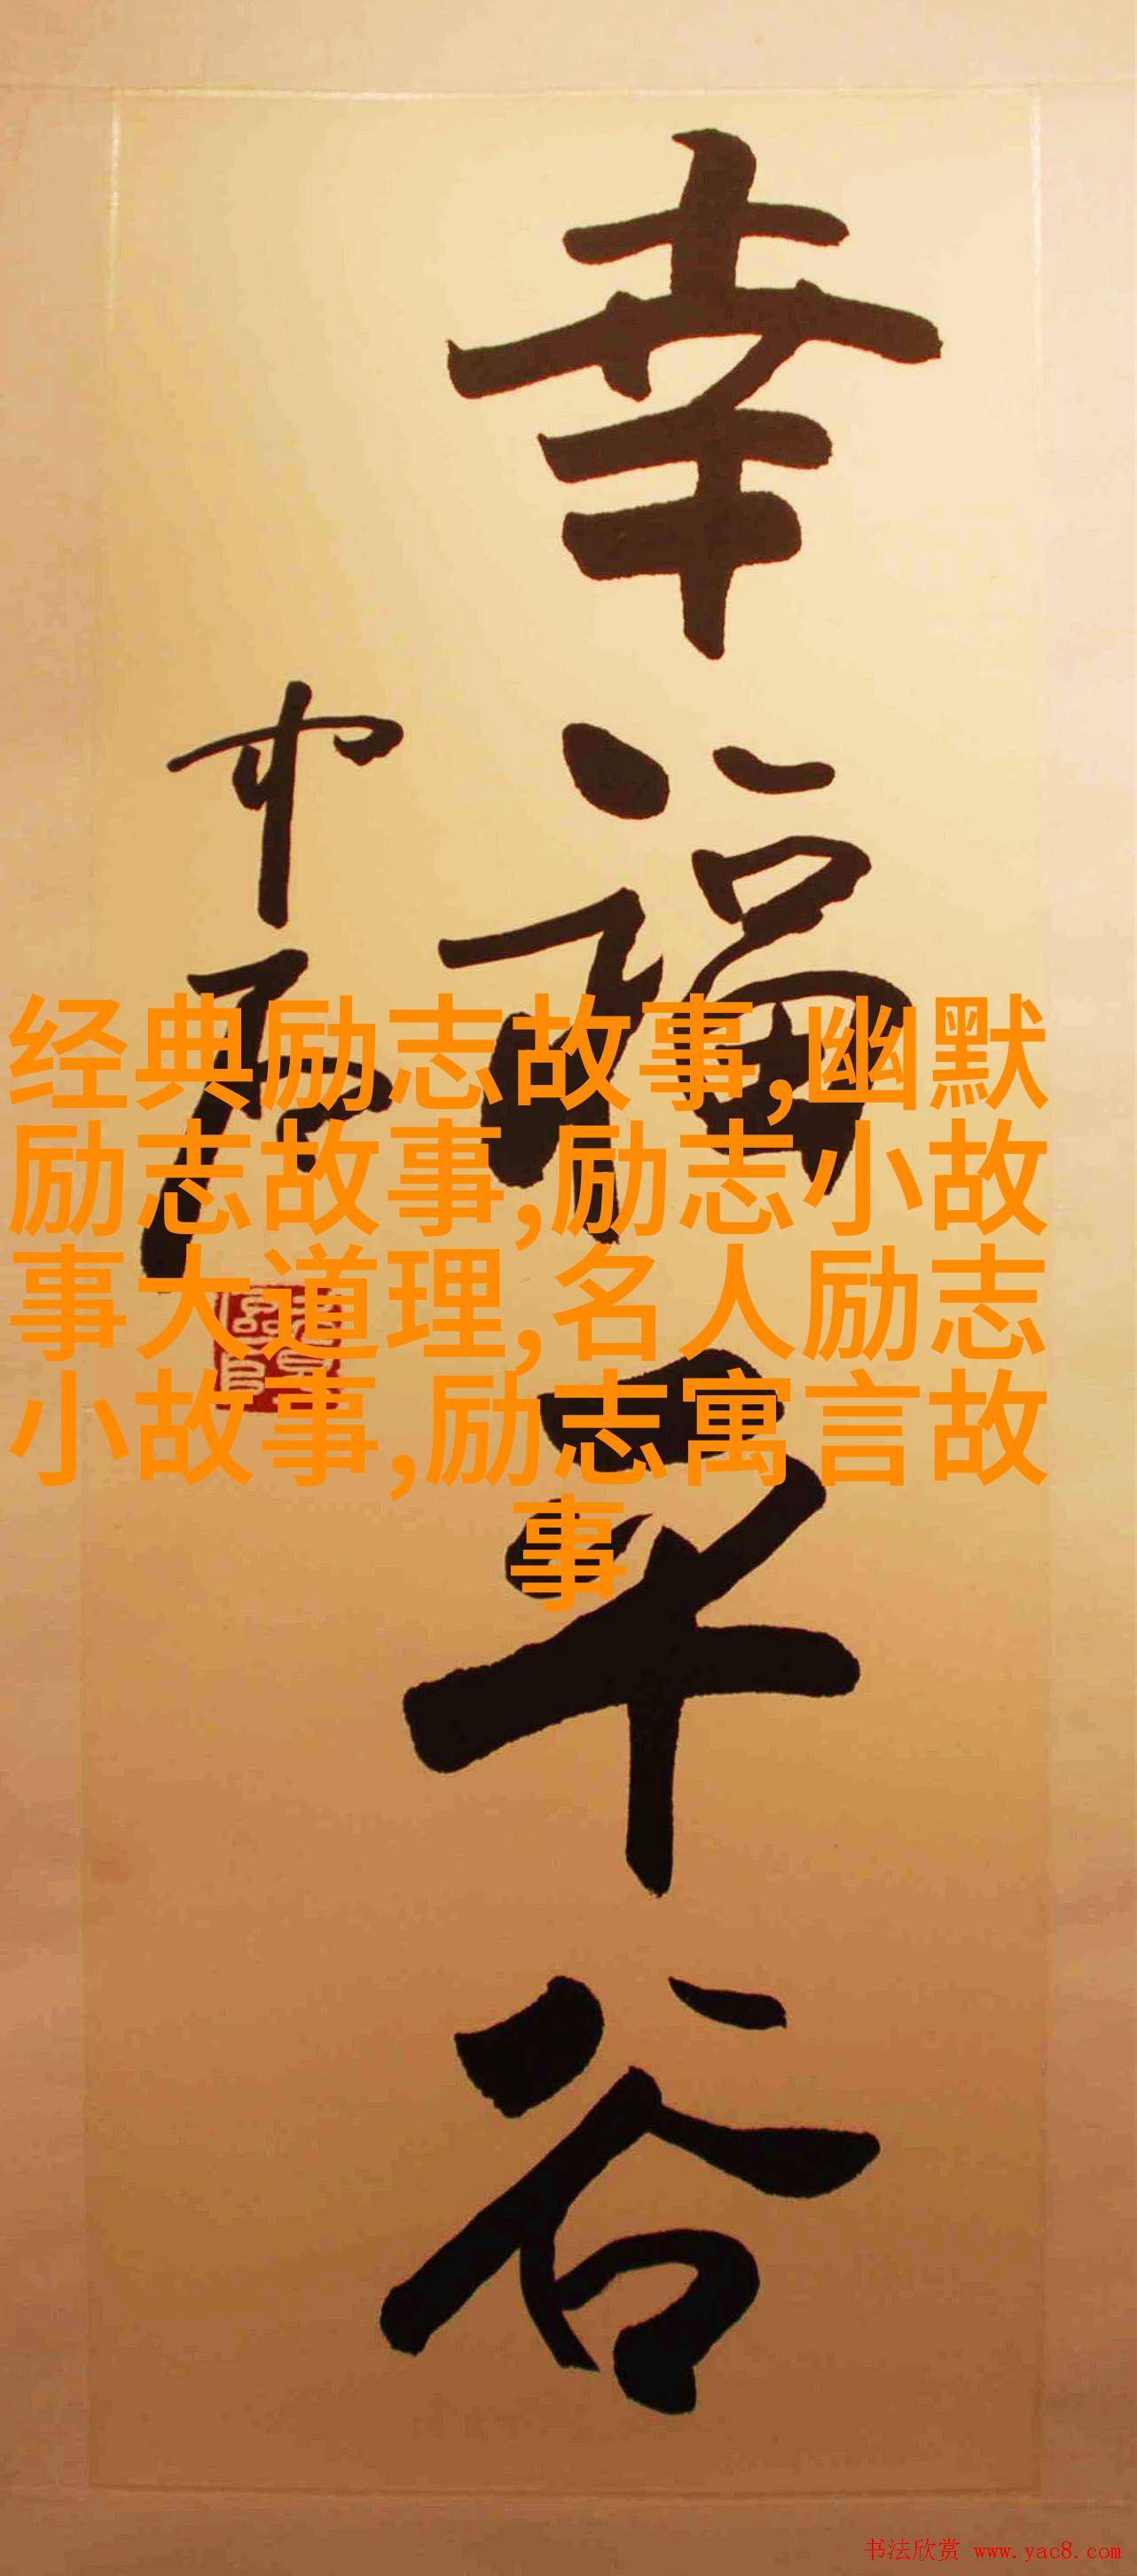 幸福平谷
中石
经典励志故事,幽默
励志故事,励志小故
事大道理,名人励志
小故事,励志寓言故
事
书法欣赏 www.yac8.com